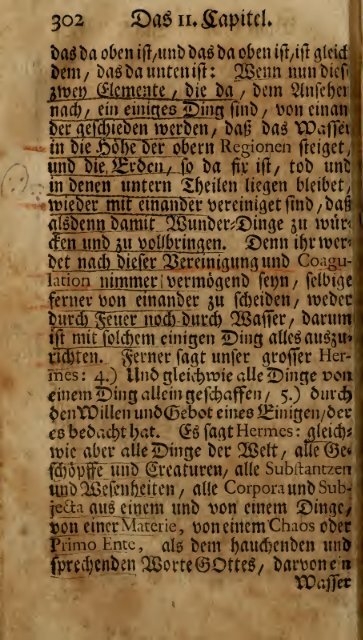 302 Das 11. Capitel.
das da oben ist/und das da oben ist/ist gleich
dem, das da unten ist: Wenn nun diese
zwey Elemente, die da, dem Ansehen
nach, ein einiges Ding sind, von einan
der geschieden werden, daß das Wasser
in die Höhe der obern Regionen steiget,
und die Erden, so da fix ist, tod und
in denen untern Theilen liegen bleibet,
wieder mit einander vereiniget sind, daß
alsdenn damit Wunder-Dinge zu wür-
cken und zu vollbringen. Denn ihr wer-
det nach dieser Vereinigung und Coagu-
lation nimmer vermögend seyn, selbige
ferner von einander zu scheiden, weder
durch Feuer noch durch Wasser, darum
ist mit solchem einigen Ding alles auszu-
richten. Ferner sagt unser grosser Her-
mes: 4.) Und gleichwie alle Dinge von
einem Ding allein geschaffen, 5.) durch
den Willen und Gebot eines Einigen/der
es bedacht hat. Es sagt Hermes: gleich-
wie aber alle Dinge der Welt, alle Ge-
schöpffe und Creaturen, alle Substantzen
und Wesenheiten, alle Corpora und Sub-
jecta aus einem und von einem Dinge,
von einer Materie, von einem Chaos oder
Primo Ente, als dem hauchenden und
sprechenden Worte GOttes, darvon ein
Wasser